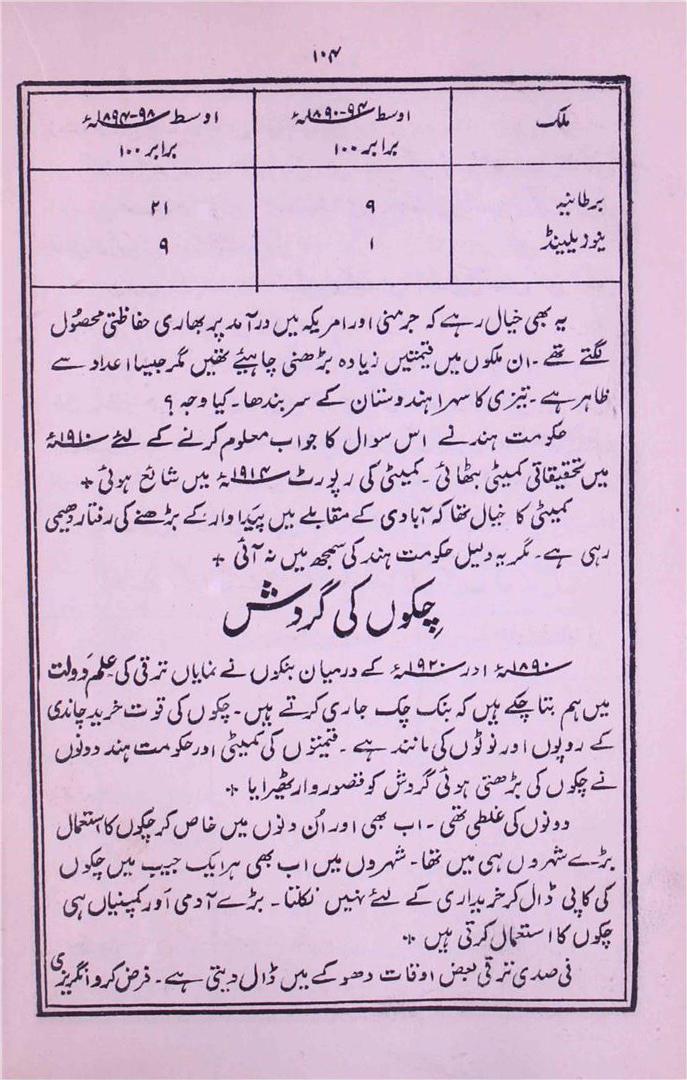 ۱۰۴
ملک اوسط ۹۴-۱۸۹۰ء اوسط ۹۸-۱۸۹۴ء
برابر ۱۰۰ برابر ۱۰۰
برطانیہ ۹ ۲۱
نیوزیلینڈ ۱ ۹
یہ بھی خیال رہے کہ جرمنی اور امریکہ میں درآمد پر بھاری حفاظتی محصُول
لگتے تھے۔ ان ملکوں میں قیمتیں زیادہ بڑھنی چاہیئے تھیں مگر جیسا اعداد سے
ظاہر ہے۔ تیزی کا سہرا ہندوستان کے سر بندھا۔ کیا وجہ ؟
حکومت ہند نے اس سوال کا جواب معلوم کرنے کے لئے ۱۹۱۰ء
میں تحقیقاتی کمیٹی بٹھائی۔ کمیٹی کی رپورٹ ۱۹۱۴ء میں شائع ہوئی +
کمیٹی کا خیال تھا کہ آبادی کے مقابلے میں پیداوار کے بڑھنے کی رفتار دھیمی
رہی ہے۔ مگر یہ دلیل حکومت ہند کی سمجھ میں نہ آئی +
چکوں کی گردش
۱۸۹۰ء اور ۱۹۲۰ء کے درمیان بنکوں نے نمایاں ترقی کی علم دولت
میں ہم بتا چکے ہیں کہ بنک چک جاری کرتے ہیں۔ چکوں کی قوت خرید چاندی
کے روپوں اور نوٹوں کی مانند ہے۔ قیمتوں کی کمیٹی اور حکومت ہند دونوں
نے چکوں کی بڑھتی ہوئی گردش کو قصور وار ٹھیرایا +
دونوں کی غلطی تھی۔ اب بھی اور اُن دنوں میں خاص کر چکوں کا استعمال
بڑے شہروں ہی میں تھا۔ شہروں میں اب بھی ہر ایک جیب میں چکوں
کی کاپی ڈال کر خریداری کے لئے نہیں نکلتا۔ بڑے آدمی اَور کمپنیاں ہی
چکوں کا استعمال کرتی ہیں +
فی صدی ترقی بعض اوقات دھوکے میں ڈال دیتی ہے۔ فرض کرو انگریزی